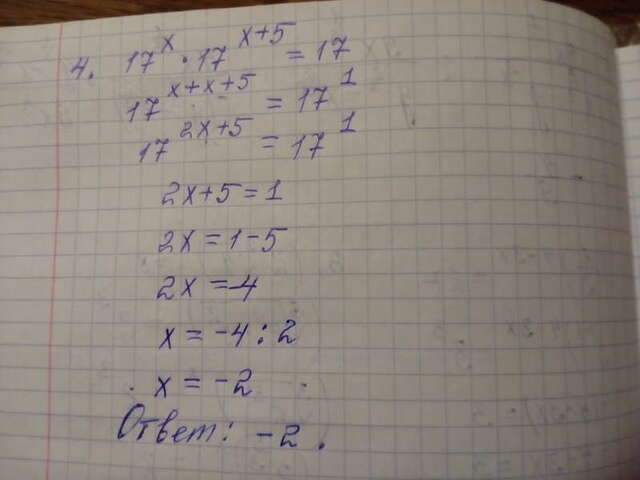 4. 17^x · 17^(x+5) = 17
17^(x+x+5) = 17^1
17^(2x+5) = 17^1
2x+5=1
2x=1-5
2x=-4
x = -4:2
x = -2
Ответ: -2.